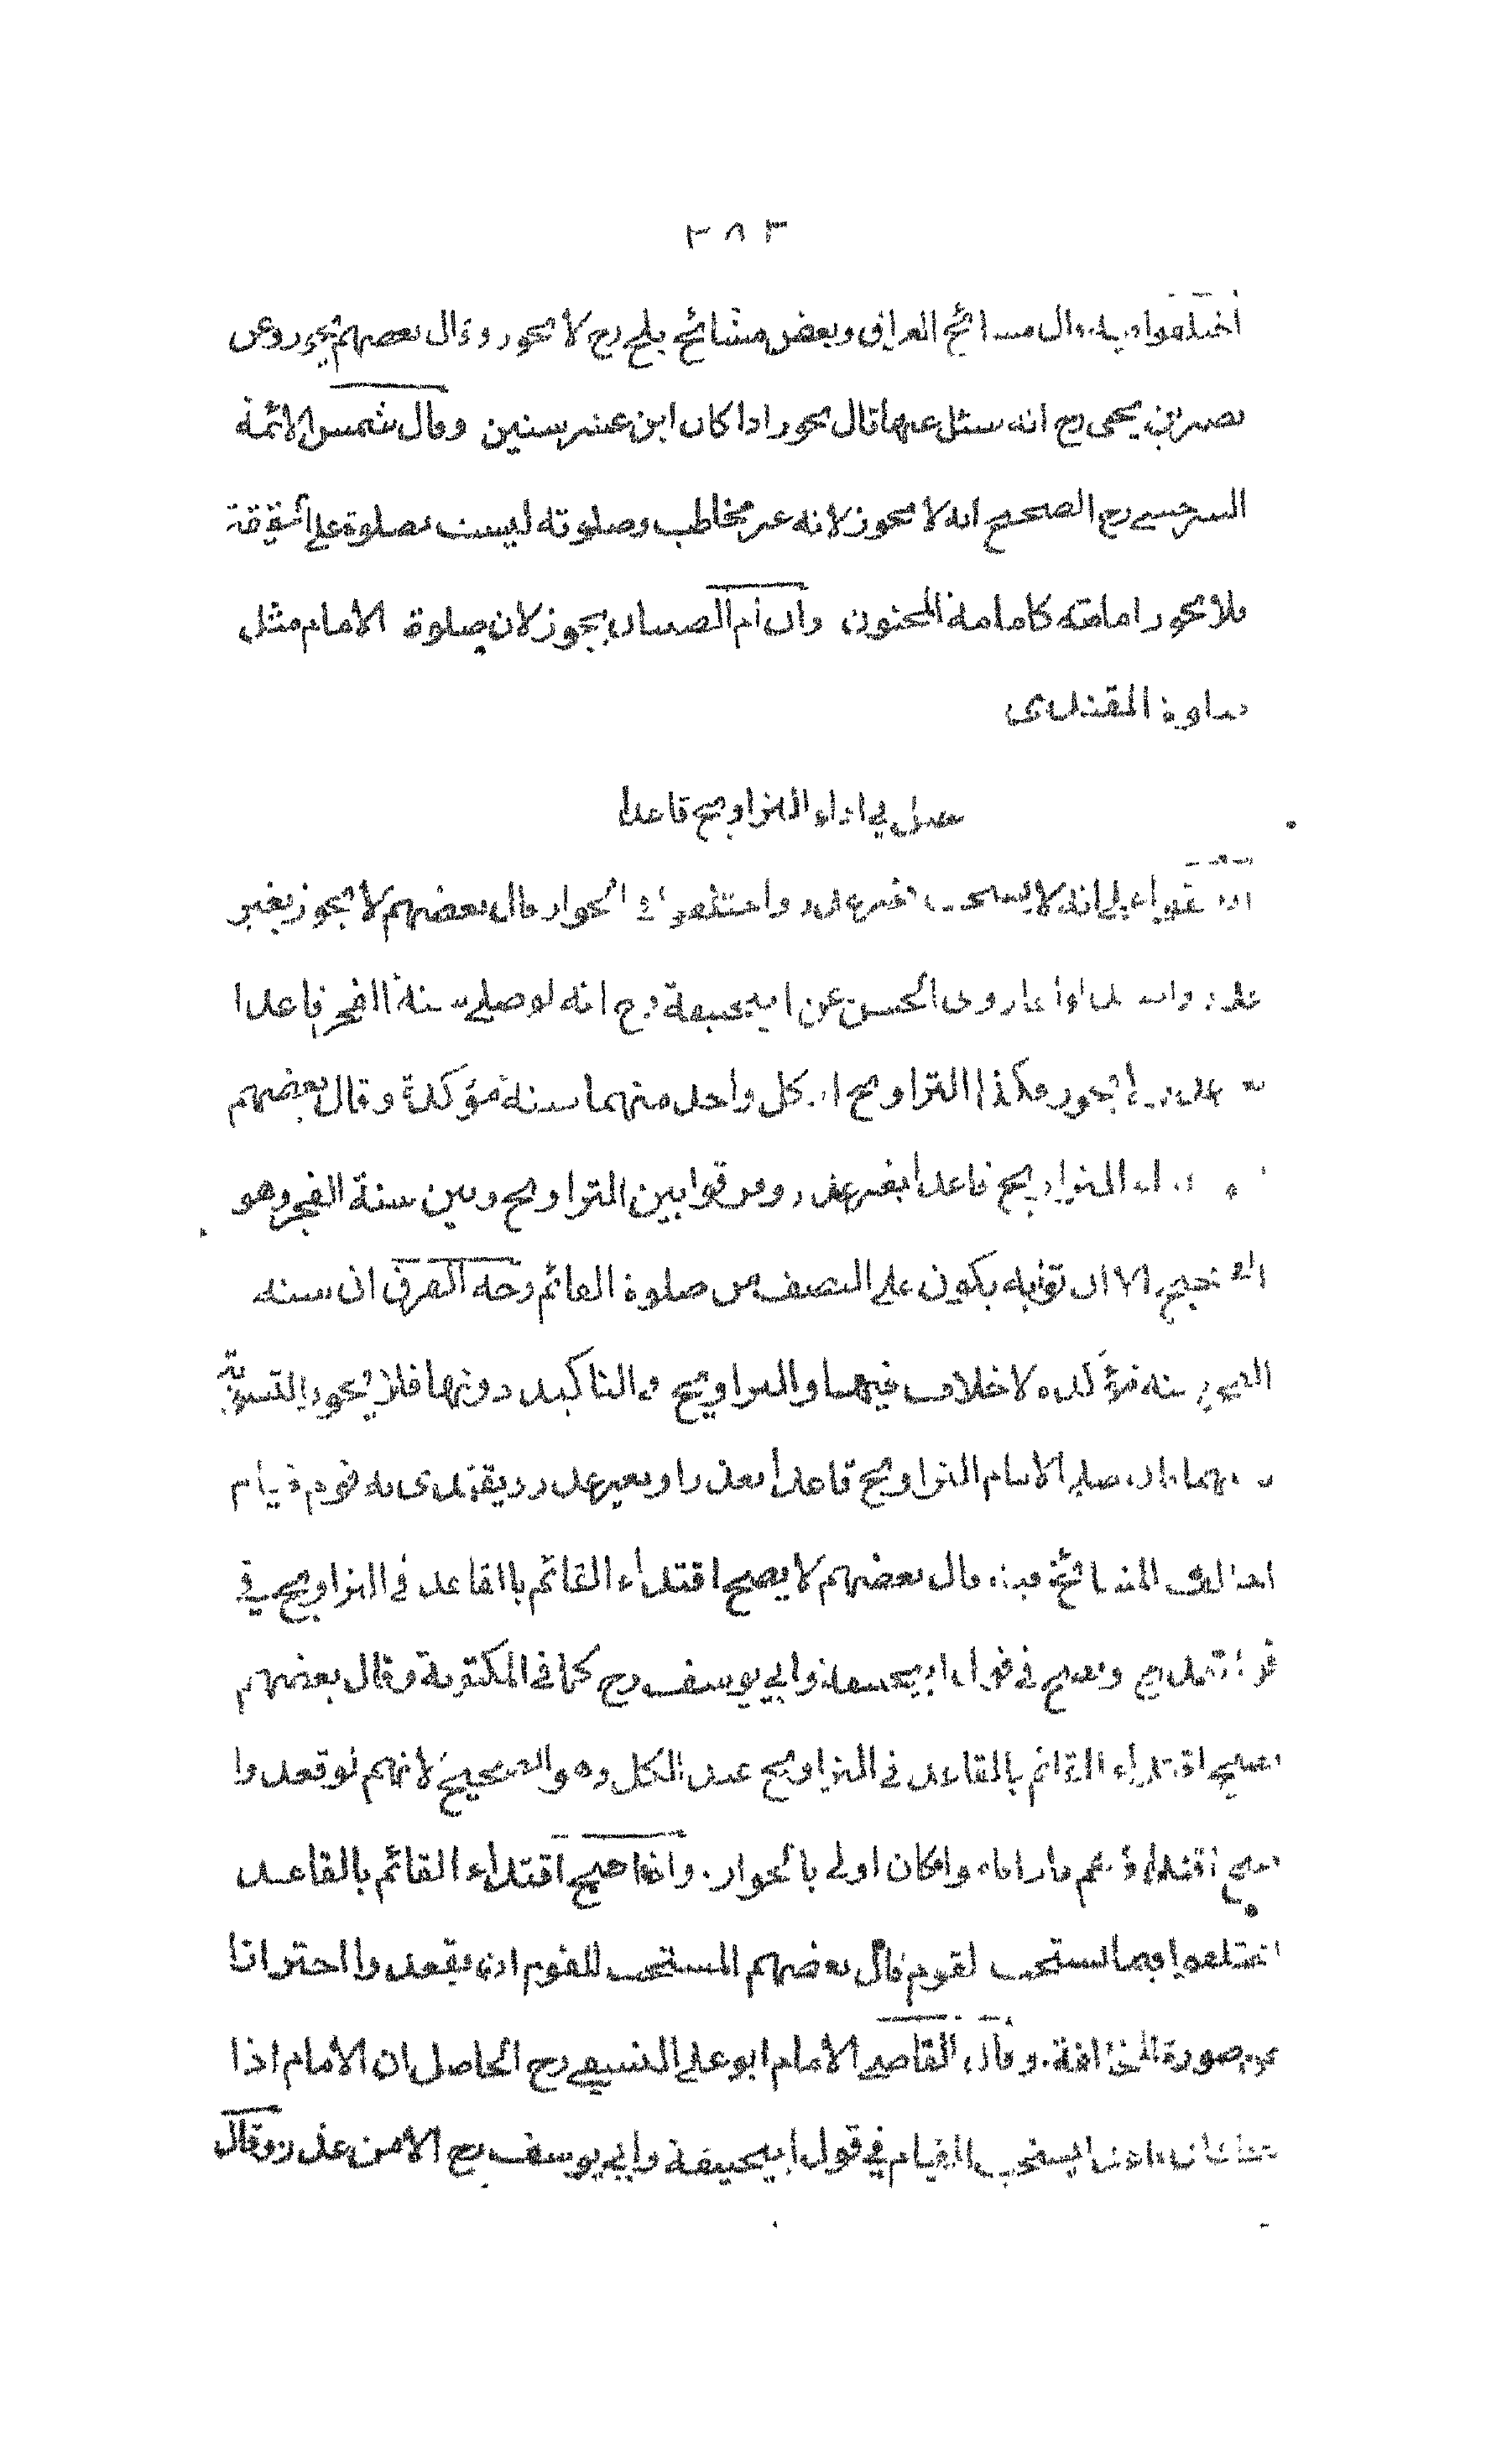 ٢٨٣
اختلفوا فيه قال مشائخ العراق وبعض مشائخ بلخ رح لا يجوز وقال بعضهم يجوز وعن
نصر بن يحيى رح انه سئل عنها قال يجوز اذا كان ابن عشر سنين وقال شمس الائمة
السرخسي رح الصحيح انه لا يجوز لانه غير مخاطب وصلوته ليست بصلوة على الحقيقة
فلا يجوز امامته كامامة المجنون وان ام الصبيان يجوز لان صلوة الامام مثل
صلوة المقتدى
فصل في اداء التراويح قاعدا
اتفقوا على انه لا يستحب بغير عذر واختلفوا في الجواز قال بعضهم لا يجوز بغير
عذر واستدلوا بما روى الحسن عن ابيحنيفة رح انه لو صلى سنة الفجر قاعدا
عذر لا يجوز وكذا التراويح اذ كل واحد منهما سنة مؤكدة وقال بعضهم
اداء التراويح قاعدا بغير عذر وفرقوا بين التراويح وبين سنة الفجر وهو
الصحيح الا ان ثوابه يكون على النصف من صلوة القائم وجه الفرق ان سنة
الفجر سنة مؤكدة لا خلاف فيها والتراويح في التاكيد دونها فلا يجوز التسوية
بينهما فان صلى الامام التراويح قاعدا بعذر او بغير عذر ويقتدى به قوم قيام
اختلف المشائخ فيه قال بعضهم لا يصح اقتداء القائم بالقاعد في التراويح في
قول محمد رح ويصح في قول ابيحنيفة وابي يوسف رح كما في المكتوبة وقال بعضهم
يصح اقتداء القائم بالقاعد في التراويح عند الكل وهو الصحيح لانهم لو قعدوا
يصح اقتداؤهم فاذا قاموا كان اولى بالجواز. واذا صح اقتداء القائم بالقاعد
اختلفوا فيما يستحب لقوم قال بعضهم المستحب للقوم ان يقعدوا احترازا
عن صورة المخالفة. وقال القاضي الامام ابو علي النسفي رح الحاصل ان الامام اذا
يستحب القيام في قول ابيحنيفة وابي يوسف رح الا من عذر وقال